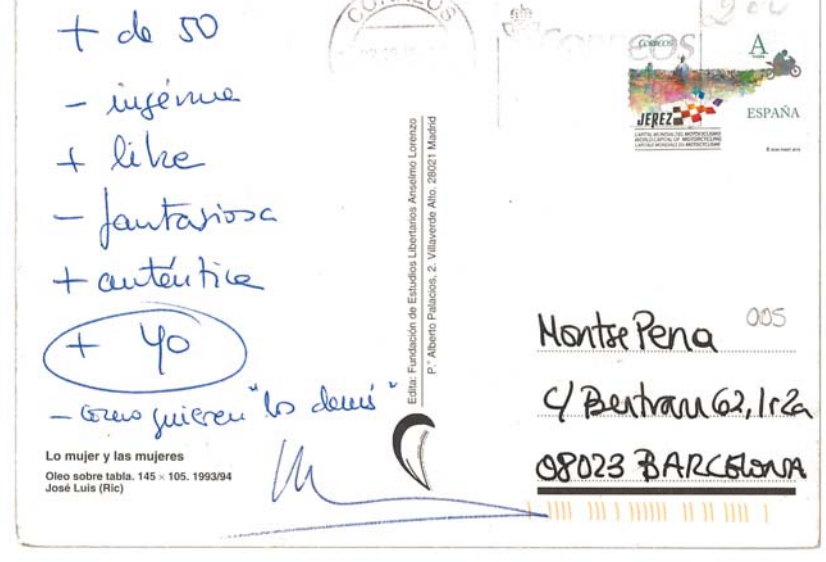 + de 50
- ingénua
+ libre
- fantasiosa
+ auténtica
+ yo
- como quieren "los demás"
Lo mujer y las mujeres
Oleo sobre tabla. 145 × 105. 1993/94
José Luis (Ric)
Edita: Fundación de Estudios Libertarios Anselmo Lorenzo
P.º Alberto Palacios, 2. Villaverde Alto. 28021 Madrid
CORREOS
CORREOS
CORREOS
A
ESPAÑA
JEREZ
CAPITAL MUNDIAL DEL MOTOCICLISMO
WORLD CAPITAL OF MOTORCYCLING
CAPITALE MONDIALE DU MOTOCYCLISME
Montse Pena
005
C/ Bertran 62, 1r 2a
08023 BARCELONA